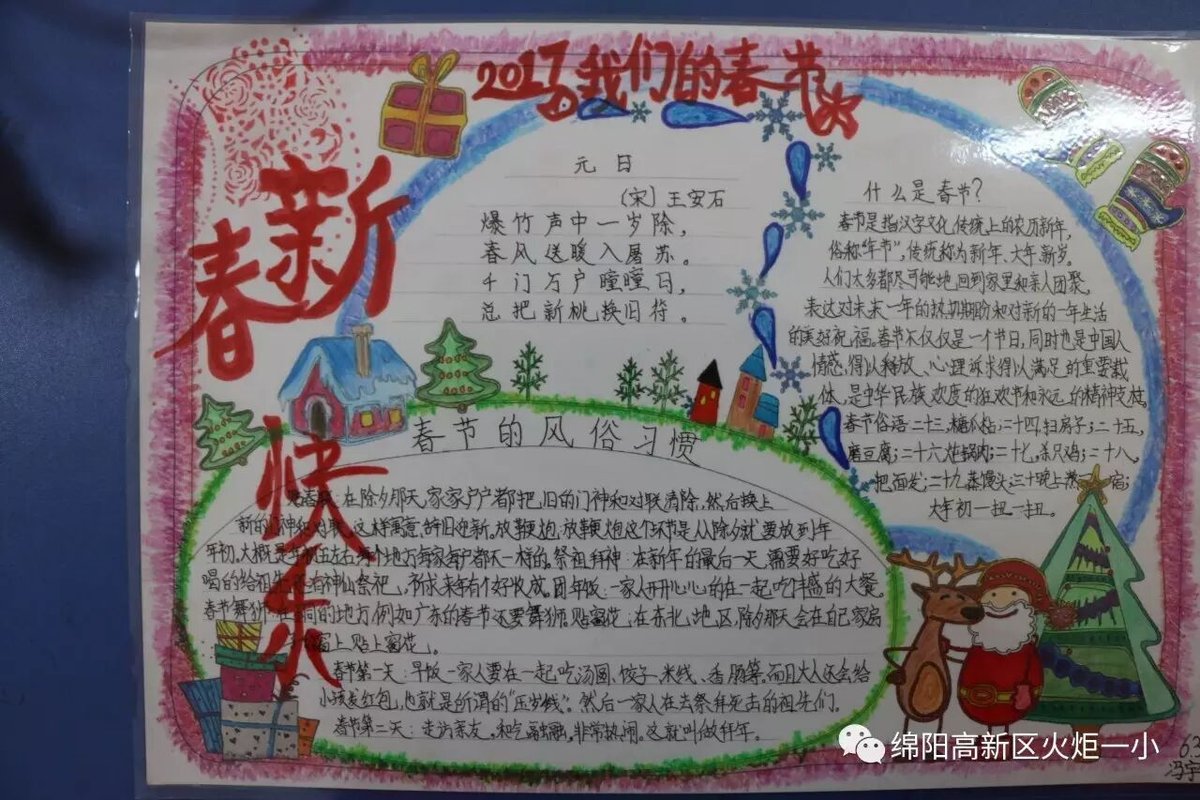 2017我们的春节
新春快乐
元日
〔宋〕王安石
爆竹声中一岁除，
春风送暖入屠苏。
千门万户瞳瞳日，
总把新桃换旧符。
什么是春节？
春节是指汉字文化传统上的农历新年，
俗称“年节”，传统称为新年、大年、新岁。
人们大多都尽可能地回到家里和亲人团聚，
表达对未来一年的热切期盼和对新的一年生活
的美好祝福。春节不仅仅是一个节日，同时也是中国人
情感得以释放、心理诉求得以满足的重要载
体，是中华民族欢度的狂欢节和永远的精神支柱。
春节俗语：二十三，糖瓜粘；二十四，扫房子；二十五，
磨豆腐；二十六，炸锅肉；二十七，杀只鸡；二十八，
把面发；二十九，蒸馒头，三十晚上熬一宿；
大年初一扭一扭。
春节的风俗习惯
贴春联：在除夕那天，家家户户都把旧的门神和对联清除，然后换上
新的门神和对联，这样寓意辞旧迎新。放鞭炮：放鞭炮这个环节是从除夕就要放到年
年初，大概是 左右，每个地方每家每户都不一样的。祭祖拜神：在新年的最后一天，需要好吃好
喝的给祖先 还有神仙祭祀，祈求来年有个好收成。团年饭：一家人开开心心的在一起吃丰盛的大餐。
春节舞狮：在 的地方，例如广东的春节还要舞狮。贴窗花：在东北地区，除夕那天会在自己家房
窗上贴上窗花。
春节第一天：早饭一家人要在一起吃汤圆、饺子、米线、香肠等，而且大人还会给
小孩发红包，也就是所谓的“压岁钱”。然后一家人在去祭拜死去的祖先们。
春节第二天：走访亲友，和气融融，非常热闹。这就叫做拜年。
绵阳高新区火炬一小